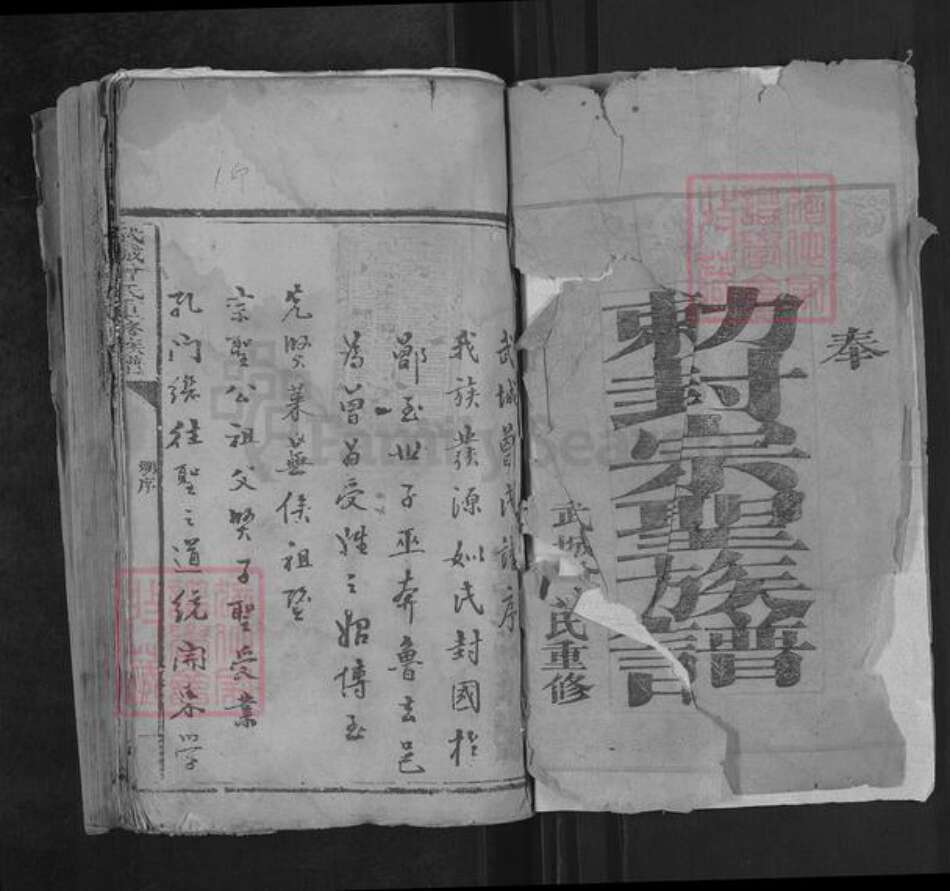 奉
勅封宗聖族譜
武城
氏重修
武城曾氏譜序
我族發源姒氏封國於
鄫至世子巫奔魯去邑
為曾曾受姓之始傳至
先賢萊蕪侯祖暨
宗聖公祖父賢子聖受業
孔門繼往聖之道統開來學
武城曾氏重修族譜
序
FamilySearch